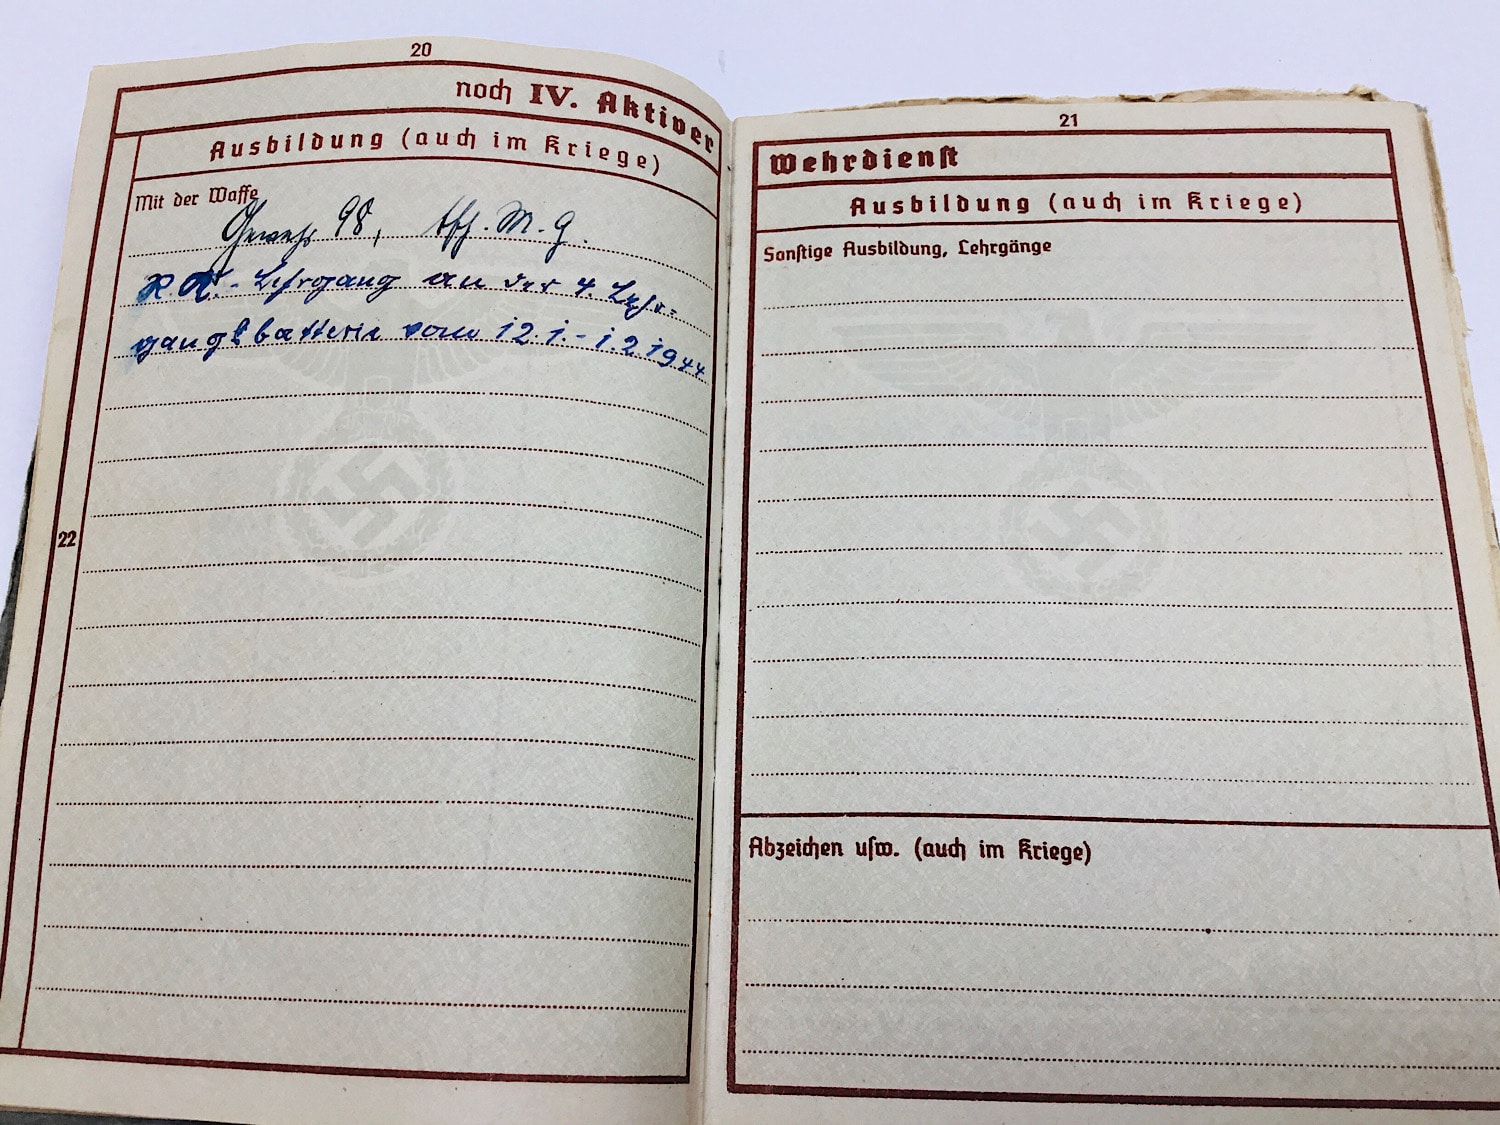 20
noch IV. Aktiver
Ausbildung (auch im Kriege)
Mit der Waffe
Gewehr 98, M. G.
Lehrgang an der 4. Lehr-
gangsbatterie vom 12.1.-1.2.1944
22
21
Wehrdienst
Ausbildung (auch im Kriege)
Sonstige Ausbildung, Lehrgänge
Abzeichen usw. (auch im Kriege)